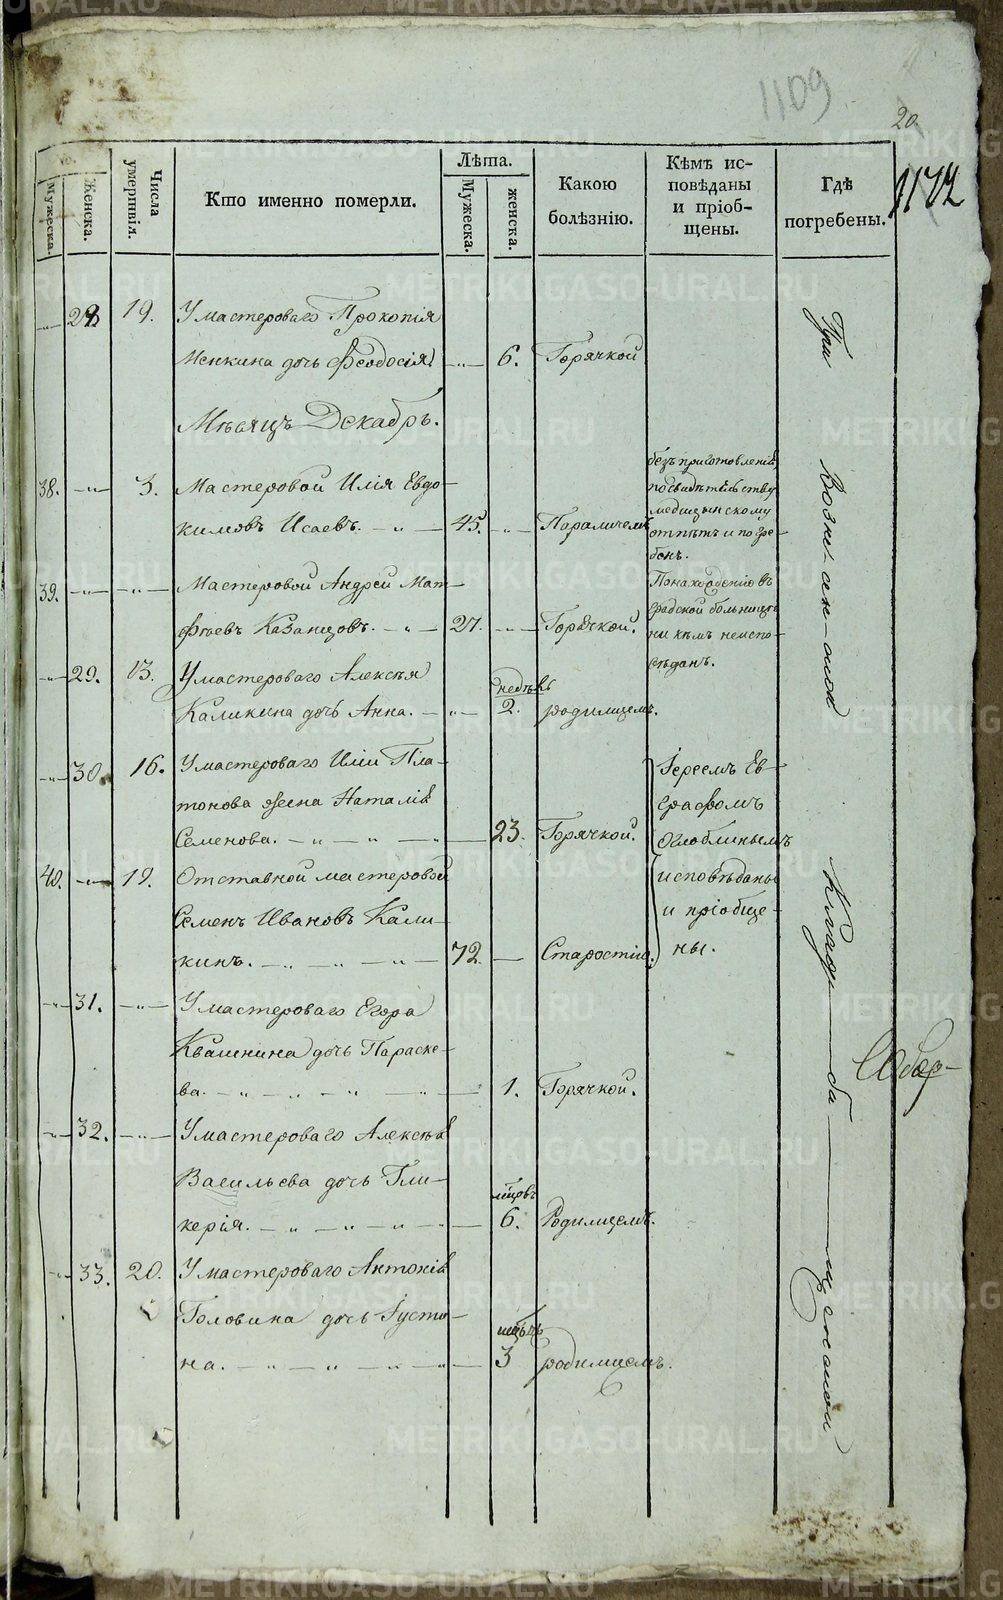 1109
20
1172
Мужеска.
Женска.
Числа умертвія.
Кто именно померли.
Лѣта.
Мужеска.
женска.
Какою болѣзнію.
Кѣмъ исповѣданы и пріобщены.
Гдѣ погребены.
28 19. У мастероваго Прокопія
дочь Феодосія 6. Горячкой
Мѣсяцъ Декабрь.
38. 3. Мастеровой Илія Евдо-
кимовъ Исаевъ. 45. Параличемъ
безъ приготовленія
по свидѣтельству
медицынскому
отпѣтъ и погре-
бенъ.
39. Мастеровой Андрей Мат-
фѣевъ Казанцовъ. 27. Горячкой.
По нахожденію въ
градской больницѣ
ни кѣмъ не испо-
вѣданъ.
29. 13. У мастероваго Алексѣя
Каликина дочь Анна. недѣль 2. родимцемъ.
30. 16. У мастероваго Иліи Пла-
тонова жена Наталія
Семенова. 23. Горячкой.
Іереемъ Ев-
графомъ
Оглоблинымъ
исповѣданы
и пріобще-
ны.
40. 19. Отставной мастеровой
Семенъ Ивановъ Кали-
кинъ. 72. Старостію.
31. У мастероваго Егора
Квашнина дочь Параске-
ва. 1. Горячкой.
32. У мастероваго Алексѣя
Васильева дочь Гли-
керія. 6. Родимцемъ.
33. 20. У мастероваго Антонія
Головина дочь Іусти-
на. 3 родимцемъ.
При Вознесенской Кладбищенской
METRIKI.GASO-URAL.RU